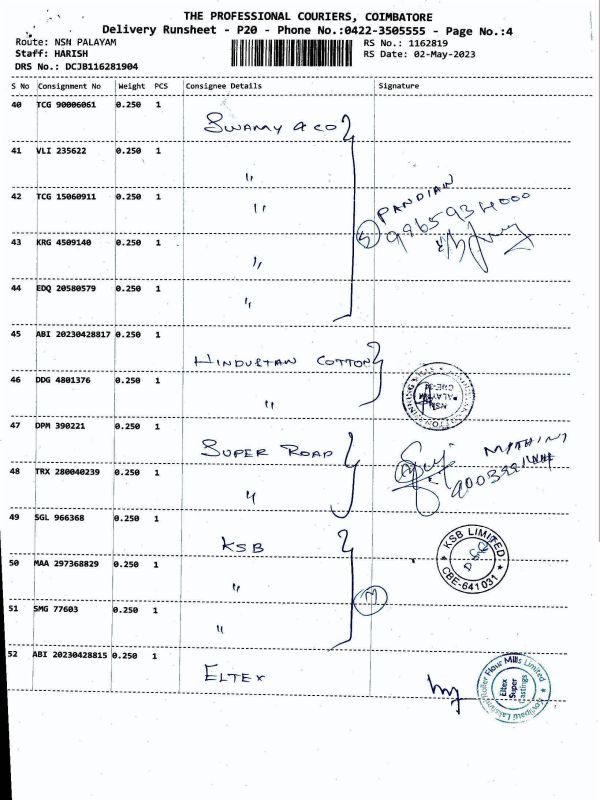 THE PROFESSIONAL COURIERS, COIMBATORE
Delivery Runsheet - P20 - Phone No.:0422-3505555 - Page No.:4
Route: NSN PALAYAM RS No.: 1162819
Staff: HARISH RS Date: 02-May-2023
DRS No.: DCJB116281904
S No Consignment No Weight PCS Consignee Details Signature
40 TCG 90006061 0.250 1
SWAMY & CO
41 VLI 235622 0.250 1
"
42 TCG 15060911 0.250 1
"
PANDIAN
43 KRG 4509140 0.250 1
"
44 EDQ 20580579 0.250 1
"
45 ABI 20230428817 0.250 1
HINDUSTAN COTTON
46 DDG 4801376 0.250 1
"
NSN
PALAYAM
47 DPM 390221 0.250 1
SUPER ROAD
48 TRX 280040239 0.250 1
"
49 SGL 966368 0.250 1
KSB
KSB LIMITED
CBE-641031
50 MAA 297368829 0.250 1
"
M
51 SMG 77603 0.250 1
"
52 ABI 20230428815 0.250 1
ELTEX
Lakshmi Roller Flour Mills Limited
Eltex
Super
Castings